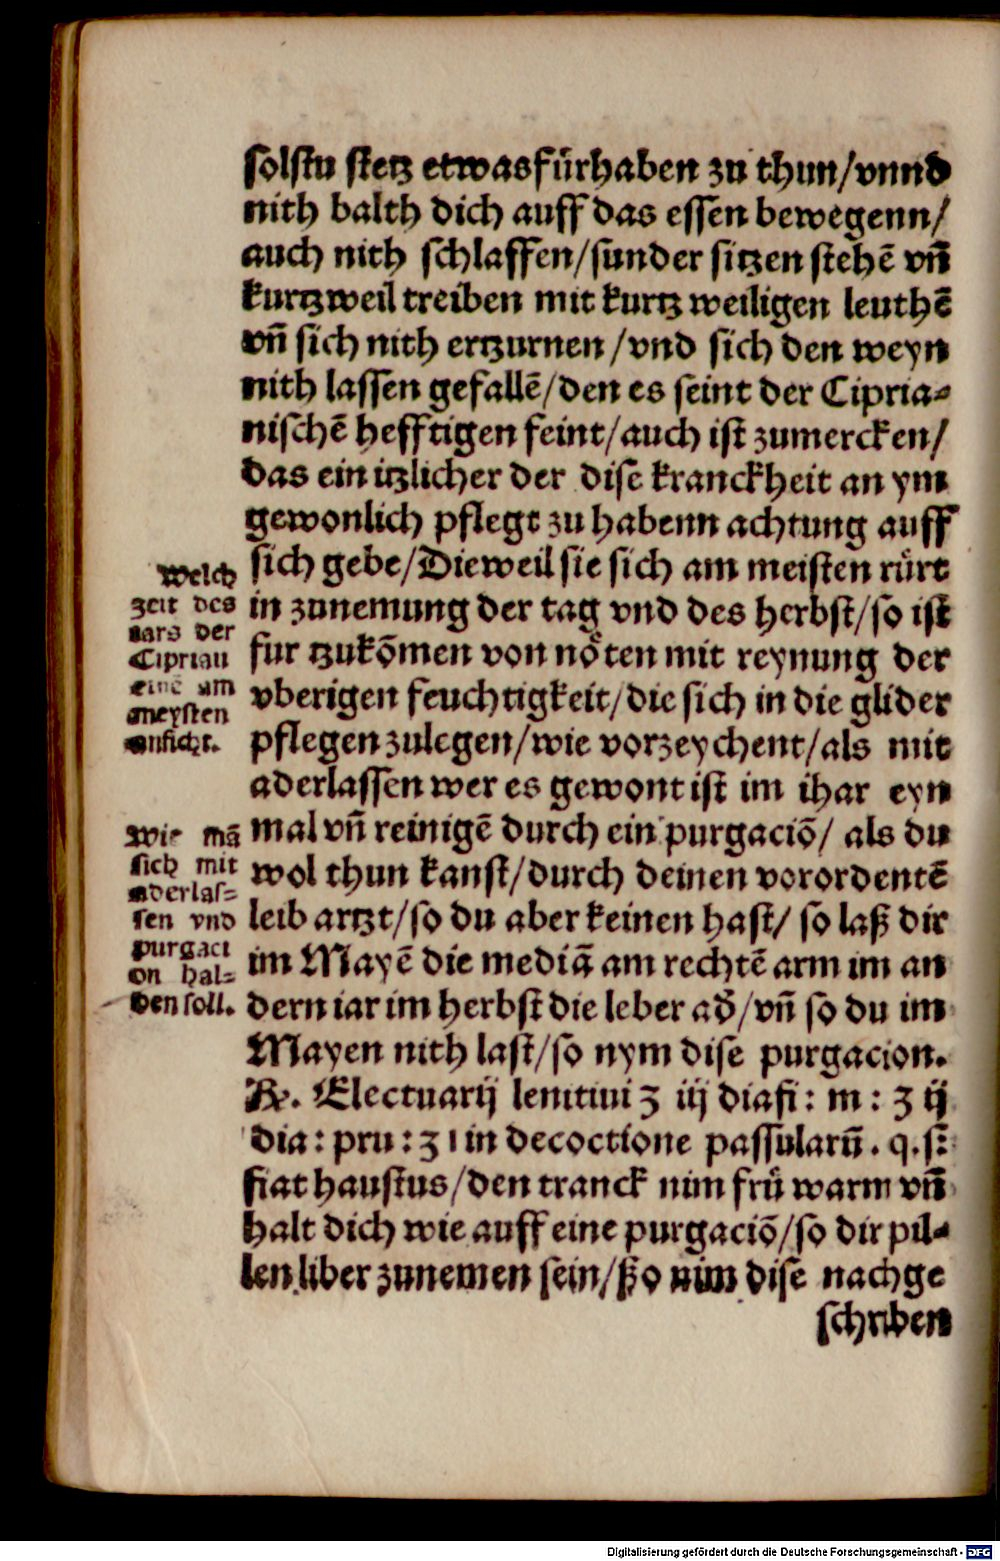 solstu stetz etwas fürhaben zu thun/vnnd
nith balth dich auff das essen bewegenn/
auch nith schlaffen/sunder sitzen stehē vñ
kurtzweil treiben mit kurtz weiligen leuthē
vñ sich nith ertzurnen/vnd sich den weyn
nith lassen gefallē/den es seint der Cipria-
nischē hefftigen feint/auch ist zumercken/
das ein itzlicher der dise kranckheit an ym
gewonlich pflegt zu habenn achtung auff
sich gebe/Dieweil sie sich am meisten rürt
in zunemung der tag vnd des herbst/so ist
fur tzukōmen von nöten mit reynung der
vberigen feuchtigkeit/die sich in die glider
pflegen zulegen/wie vorzeychent/als mit
aderlassen wer es gewont ist im ihar eyn
mal vñ reinigē durch ein purgaciō/ als du
wol thun kanst/durch deinen verordentē
leib artzt/so du aber keinen hast/ so laß dir
im Mayē die mediā am rechtē arm im an
dern iar im herbst die leber ad̄/vñ so du im
Mayen nith last/so nym dise purgacion.
℞. Electuarij lenitiui ʒ iij diafi: m: ʒ ij
dia: pru: ʒ ı in decoctione passularū. q.s:
fiat haustus/den tranck nim frü warm vñ
halt dich wie auff eine purgaciō/so dir pil-
len liber zunemen sein/ßo nim dise nachge
schriben
Welch
zeit des
iars der
Ciprian
einē am
meysten
anficht.
Wie mā
sich mit
aderlas-
sen vnd
purgaci
on hal-
den soll.
Digitalisierung gefördert durch die Deutsche Forschungsgemeinschaft - DFG